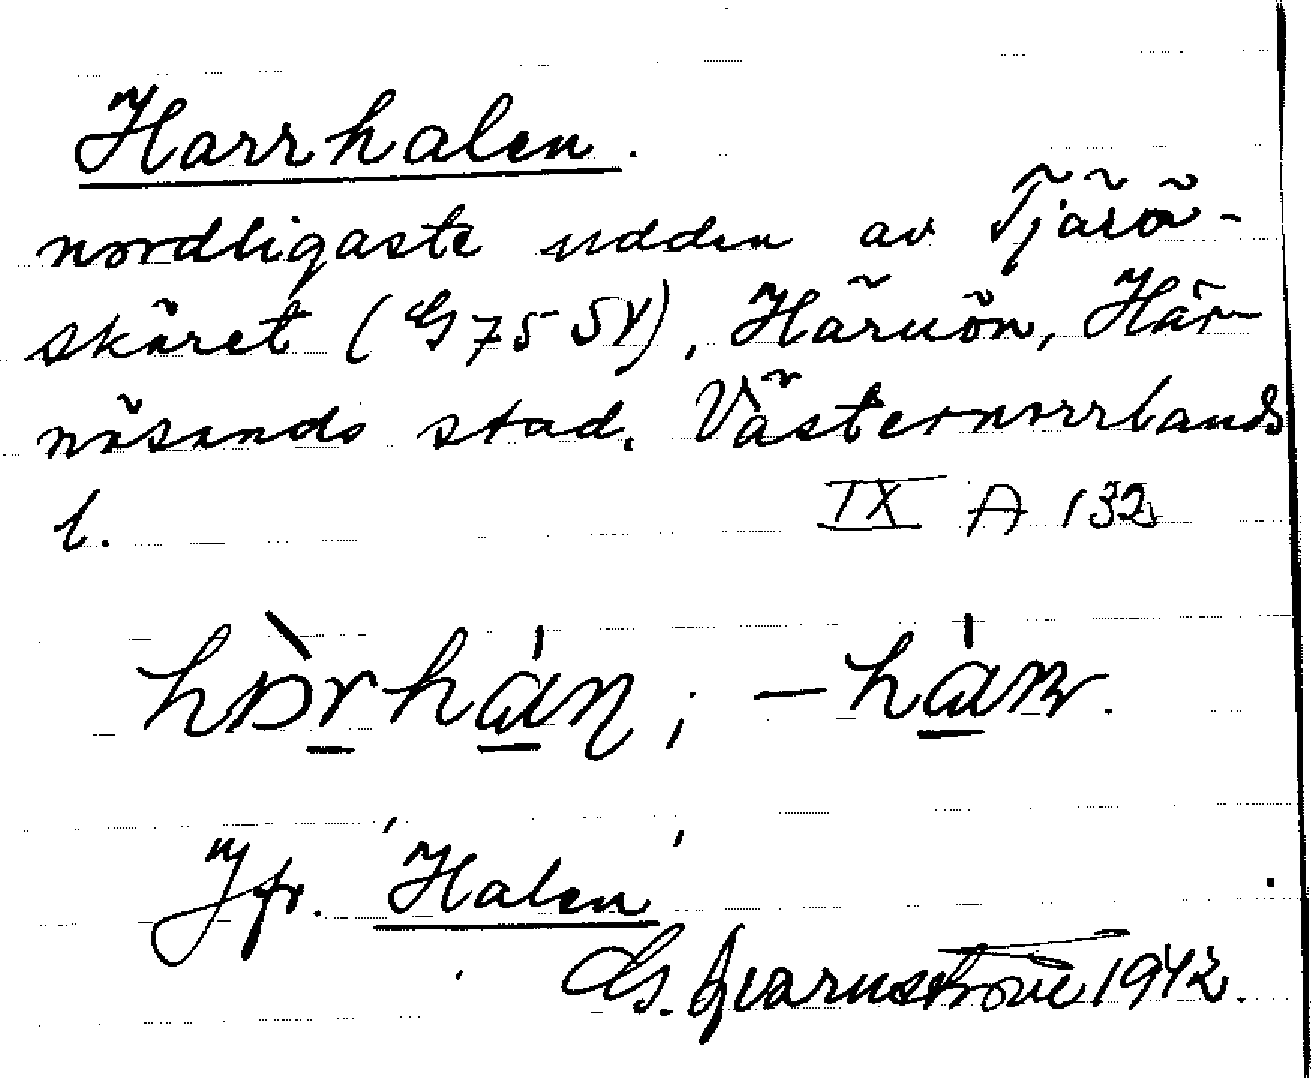 Harrhalen.
nordligaste udden av Tjärö-
skäret (G 75 SV), Härnön, Här-
nösands stad. Västernorrlands
l. IX A 132
Jfr. 'Halen'
1942.